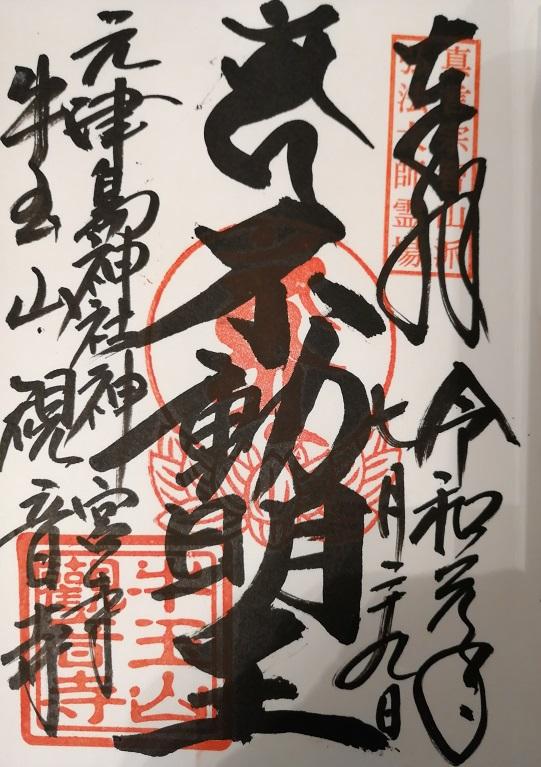 奉拝
真言宗智山派
弘法大師霊場
令和元年
七月二十九日
不動明王
元津島神社神宮寺
牛玉山観音寺
牛玉山
觀音寺